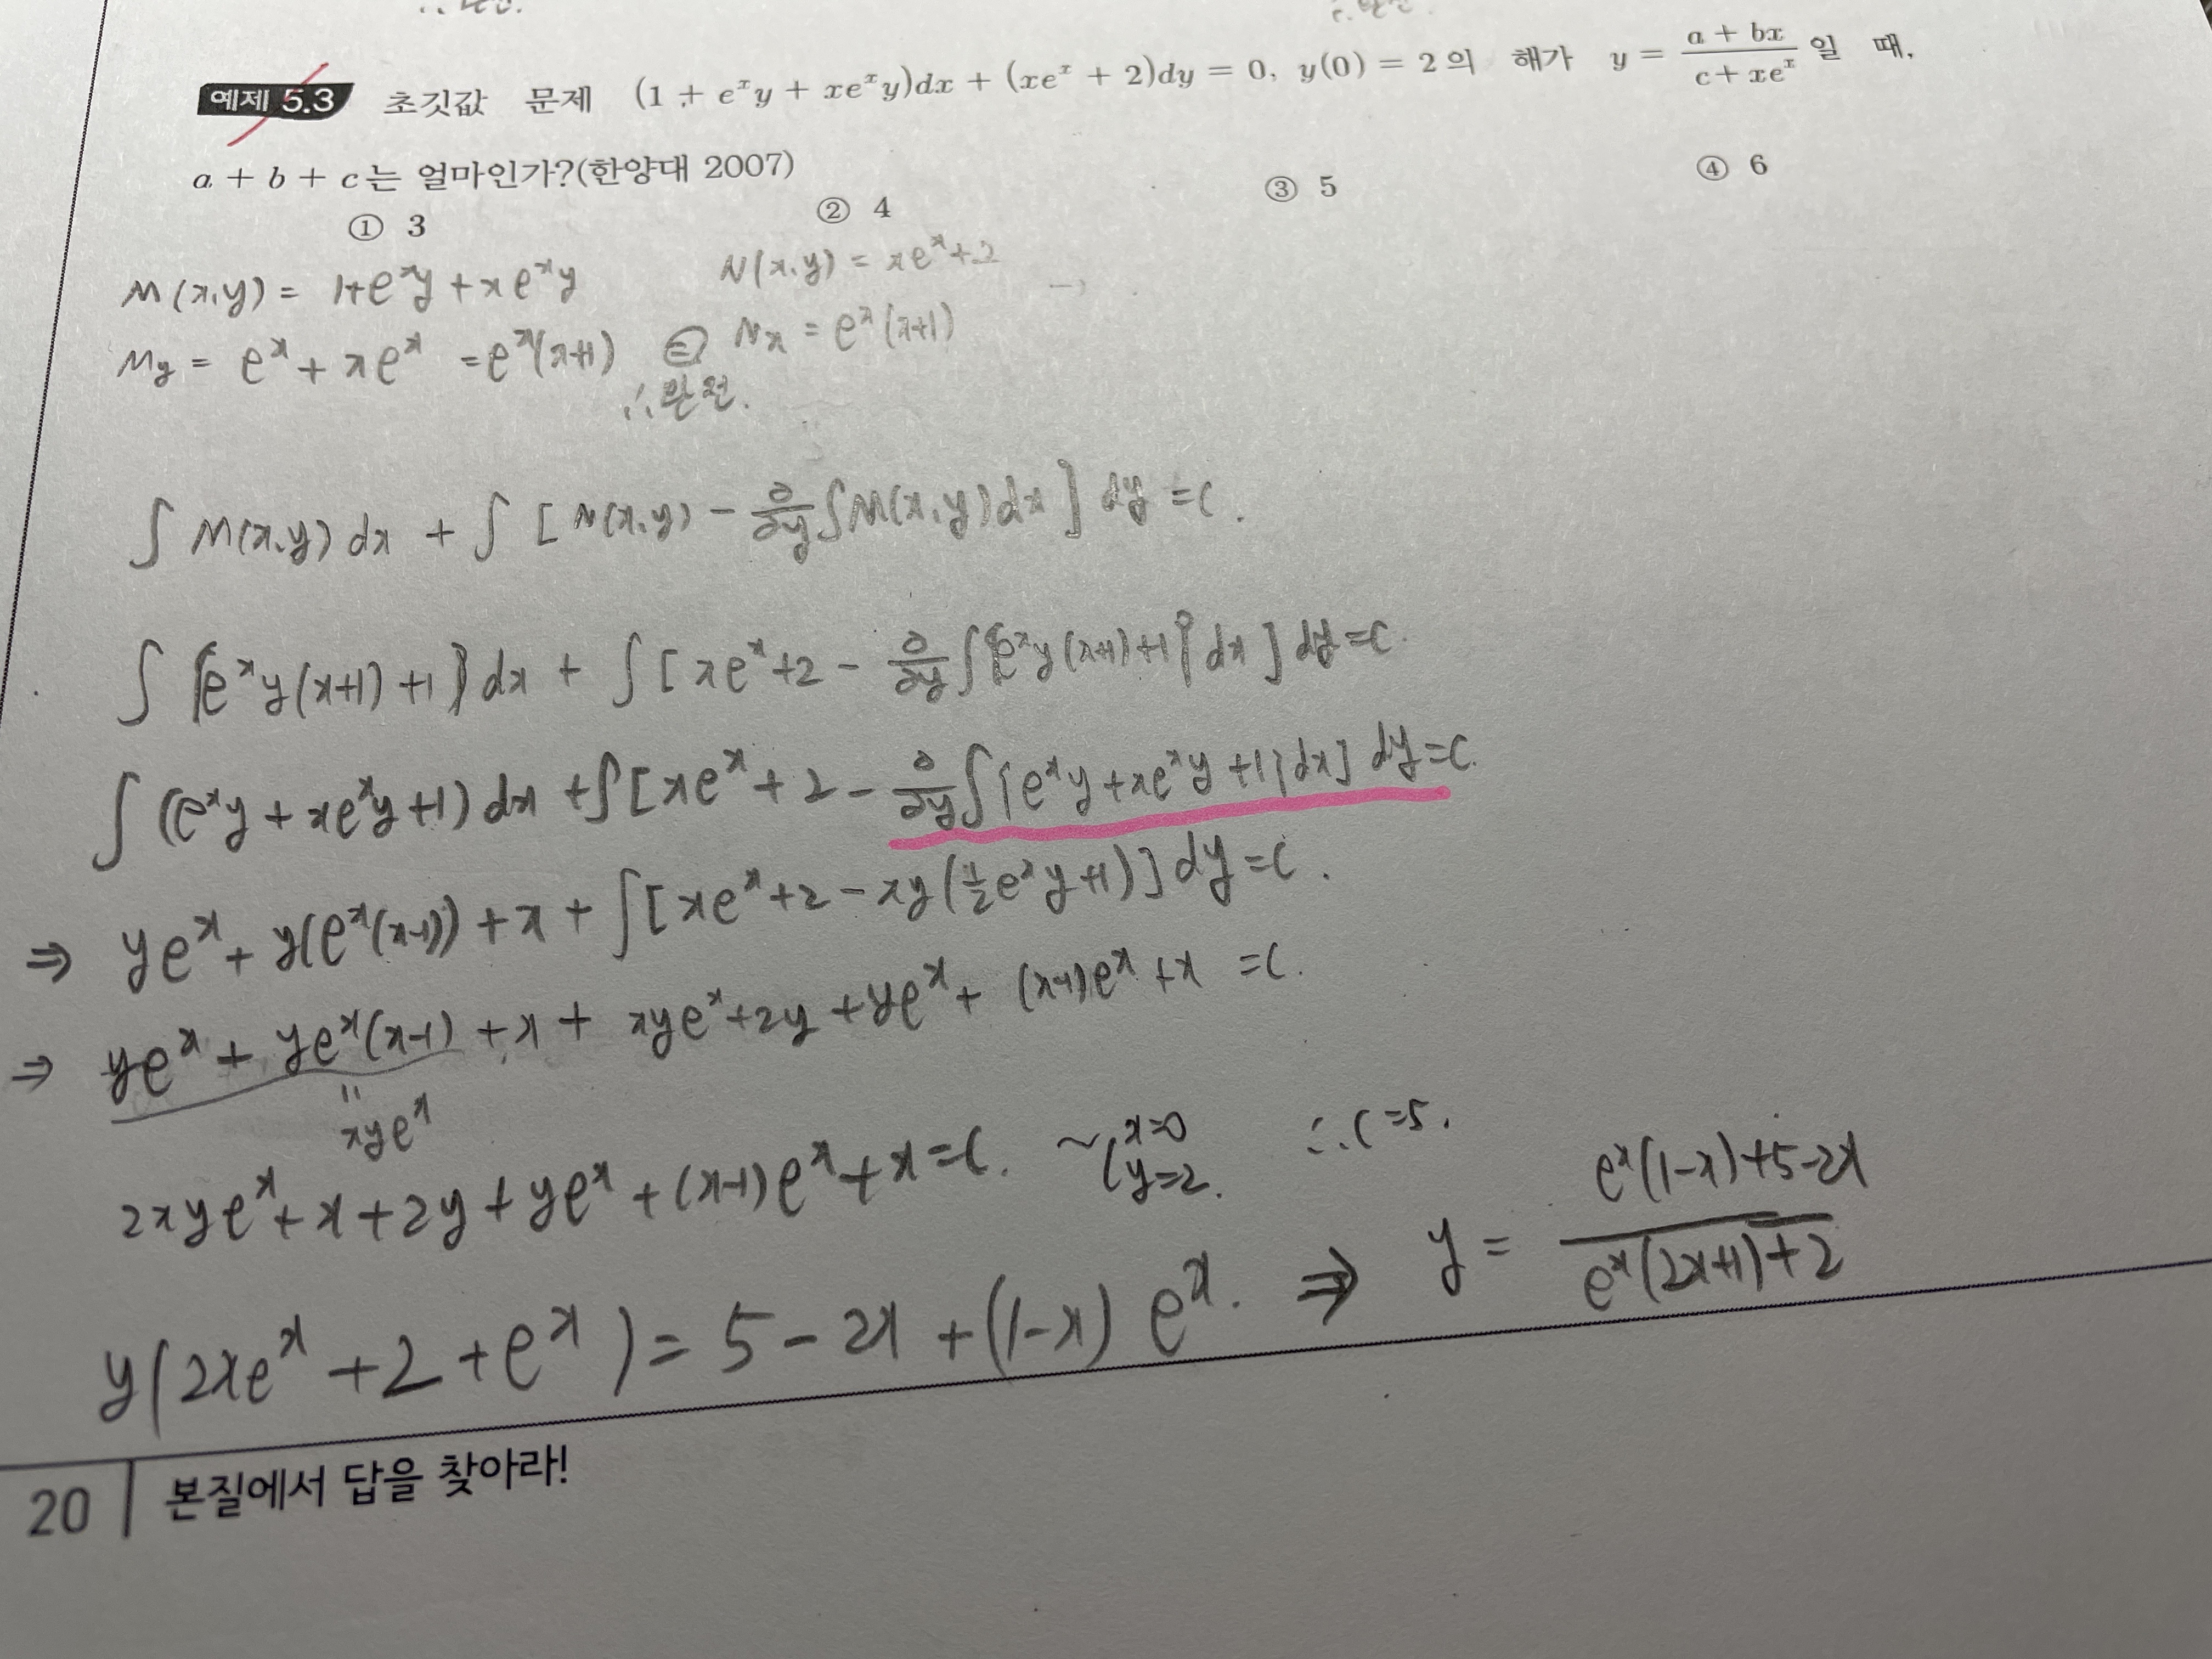 예제 5.3 초깃값 문제 (1 + e^x y + xe^x y)dx + (xe^x + 2)dy = 0, y(0) = 2의 해가 y = (a + bx)/(c + xe^x) 일 때,
a + b + c는 얼마인가?(한양대 2007)
① 3 ② 4 ③ 5 ④ 6
M(x,y) = 1+e^x y + xe^x y N(x,y) = xe^x+2
My = e^x + xe^x = e^x(x+1) = Nx = e^x(x+1)
∴ 완전.
∫ M(x,y) dx + ∫ [ N(x,y) - ∂/∂y ∫M(x,y)dx ] dy = C.
∫ {e^x y(x+1) +1} dx + ∫ [ xe^x+2 - ∂/∂y ∫{e^x y(x+1)+1} dx ] dy = C.
∫ (e^x y + xe^x y+1) dx + ∫ [xe^x + 2 - ∂/∂y ∫{e^x y + xe^x y +1}dx] dy = C.
⇒ ye^x + y(e^x(x-1)) + x + ∫ [xe^x+2 - xy(½e^x y+1)] dy = C.
⇒ ye^x + ye^x(x-1) + x + xye^x+2y + ye^x + (x-1)e^x + x = C.
"
xye^x
2xye^x + x + 2y + ye^x + (x-1)e^x + x = C. ~ ( x=0 y=2. ∴ C=5.
y(2xe^x + 2 + e^x) = 5 - 2x + (1-x) e^x. ⇒ y = (e^x(1-x)+5-2x)/(e^x(2x+1)+2)
20 본질에서 답을 찾아라!